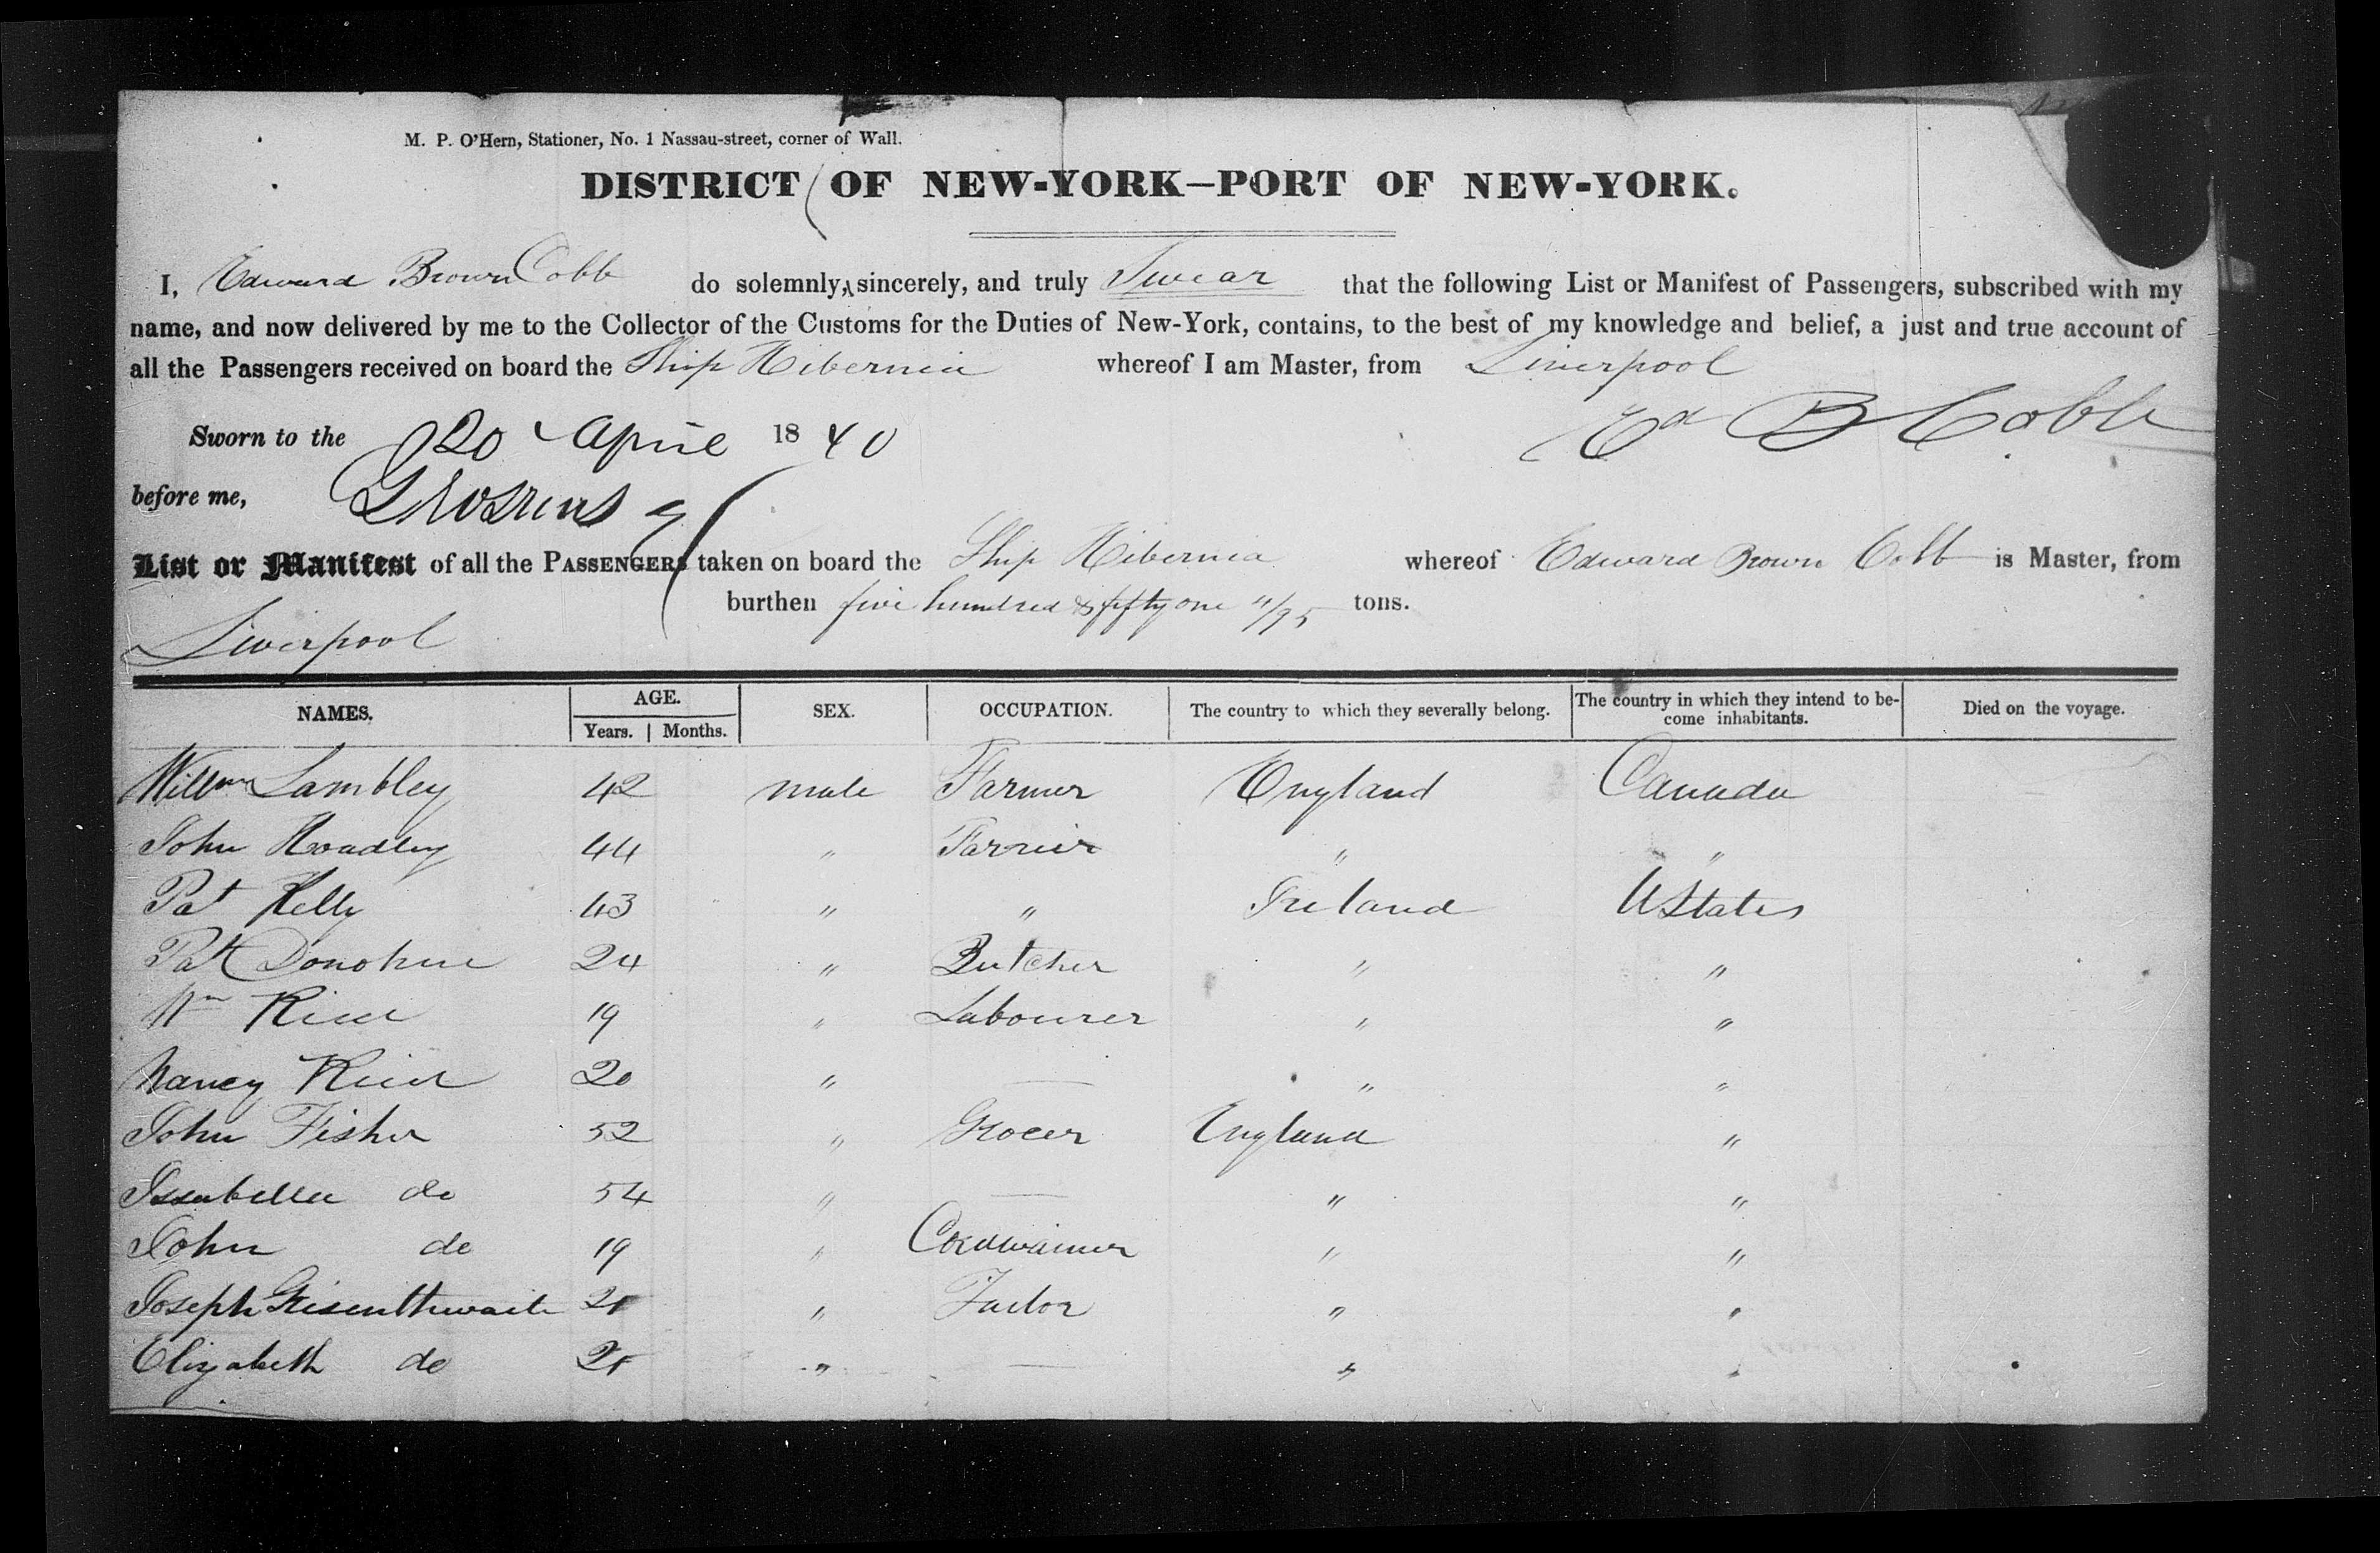 M. P. O'Hern, Stationer, No. 1 Nassau-street, corner of Wall.
DISTRICT OF NEW-YORK—PORT OF NEW-YORK.
I, Edward Brown Cobb do solemnly, sincerely, and truly Swear that the following List or Manifest of Passengers, subscribed with my
name, and now delivered by me to the Collector of the Customs for the Duties of New-York, contains, to the best of my knowledge and belief, a just and true account of
all the Passengers received on board the Ship Hibernia whereof I am Master, from Liverpool
Sworn to the 20 April 1840 Ed B Cobb
before me,
List or Manifest of all the PASSENGERS taken on board the Ship Hibernia whereof Edward Brown Cobb is Master, from
burthen five hundred & fifty one 11/95 tons.
Liverpool
NAMES. AGE. Years. | Months. SEX. OCCUPATION. The country to which they severally belong. The country in which they intend to be-come inhabitants. Died on the voyage.
Willm Lambley 42 male Farmer England Canada
John Hoadley 44 " Farrier " "
Pat Kelly 43 " " Ireland UStates
Pat Donohue 24 " Butcher " "
Wm 19 " Labourer " "
Nancy 20 " — " "
John Fisher 52 " Grocer England "
Issabella do 54 " — " "
John do 19 " Cordwainer " "
Joseph Grisenthwaite " " "
Elizabeth do " — " "